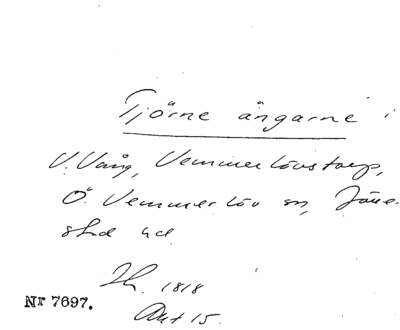 Tjörne ängarne i
V. Vång, Vemmerlövstorp,
Ö. Vemmerlöv sn, Järre-
stad hd
Lh. 1818
Akt 15.
Nr 7697.